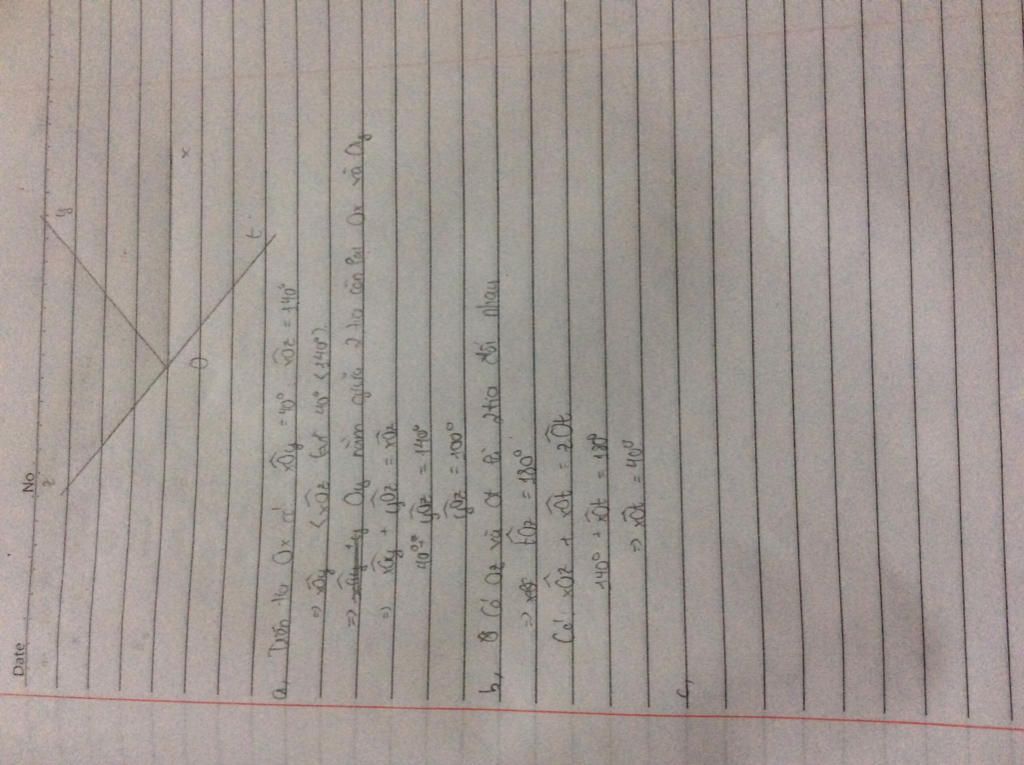 Date
No
z
y
x
O
t
a, Trên tia Ox có x̂Oy = 40°, x̂Oz = 140°
=> x̂Oy < x̂Oz (40° < 140°)
=> Oy nằm giữa 2 tia còn lại Ox và Oy
=> x̂Oy + ŷOz = x̂Oz
40° + ŷOz = 140°
ŷOz = 100°
b, Có Oz và Ot là 2 tia đối nhau
=> t̂Oz = 180°
Có, x̂Oz + x̂Ot = zÔt
140° + x̂Ot = 180°
=> x̂Ot = 40°
c,